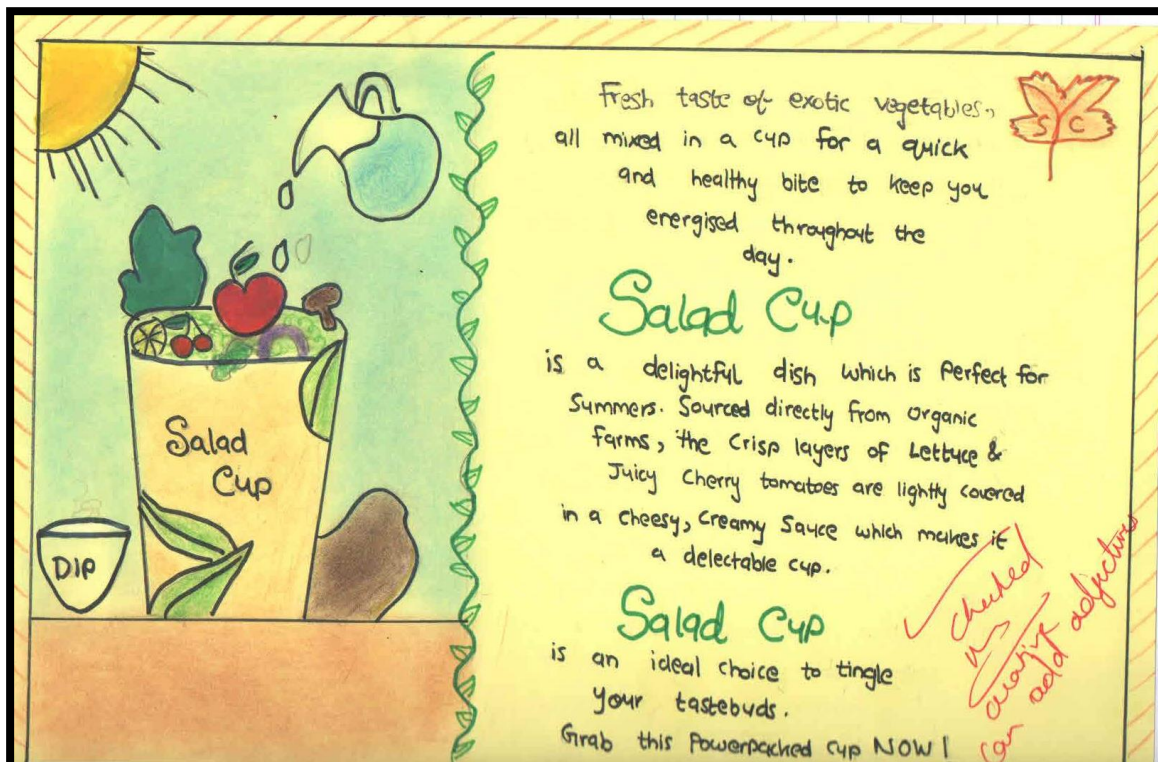 Salad
Cup
DIP
S C
Fresh taste of exotic vegetables,
all mixed in a cup for a quick
and healthy bite to keep you
energised throughout the
day.
Salad Cup
is a delightful dish which is Perfect for
Summers. Sourced directly from Organic
farms, the Crisp layers of Lettuce &
Juicy Cherry tomatoes are lightly covered
in a cheesy, Creamy Sauce which makes it
a delectable cup.
Salad Cup
is an ideal choice to tingle
your tastebuds.
Grab this Powerpacked cup NOW!
checked
creative
can add adjectives